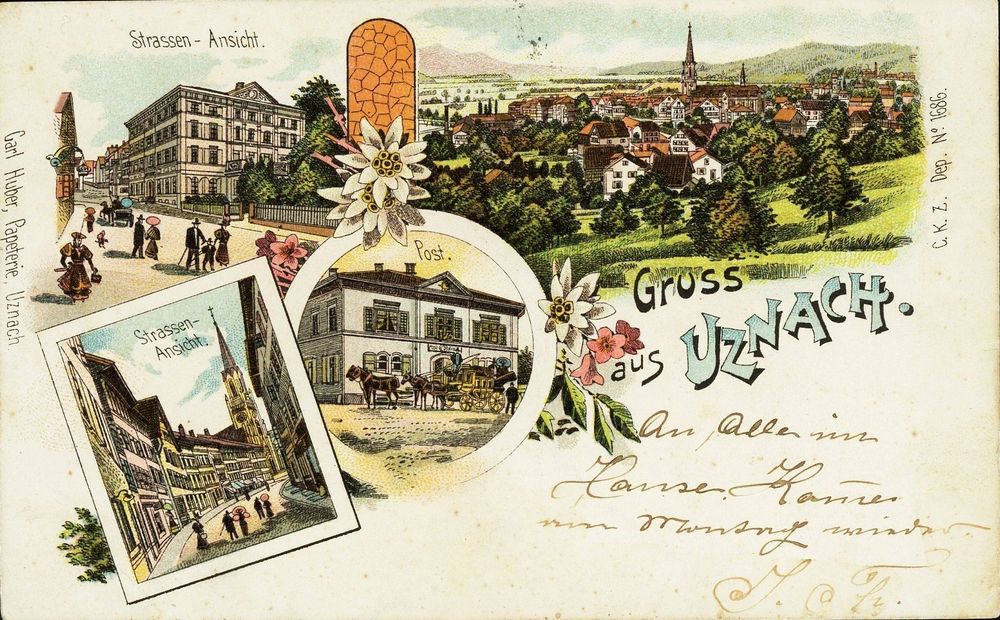 Strassen - Ansicht.
C. K. Z. Dep. Nº 11686.
Carl Huber, Papeterie, Uznach
Post.
Gruss
aus UZNACH.
Strassen-
Ansicht.
An Alle im
Hause. Komme
am Montag wieder.